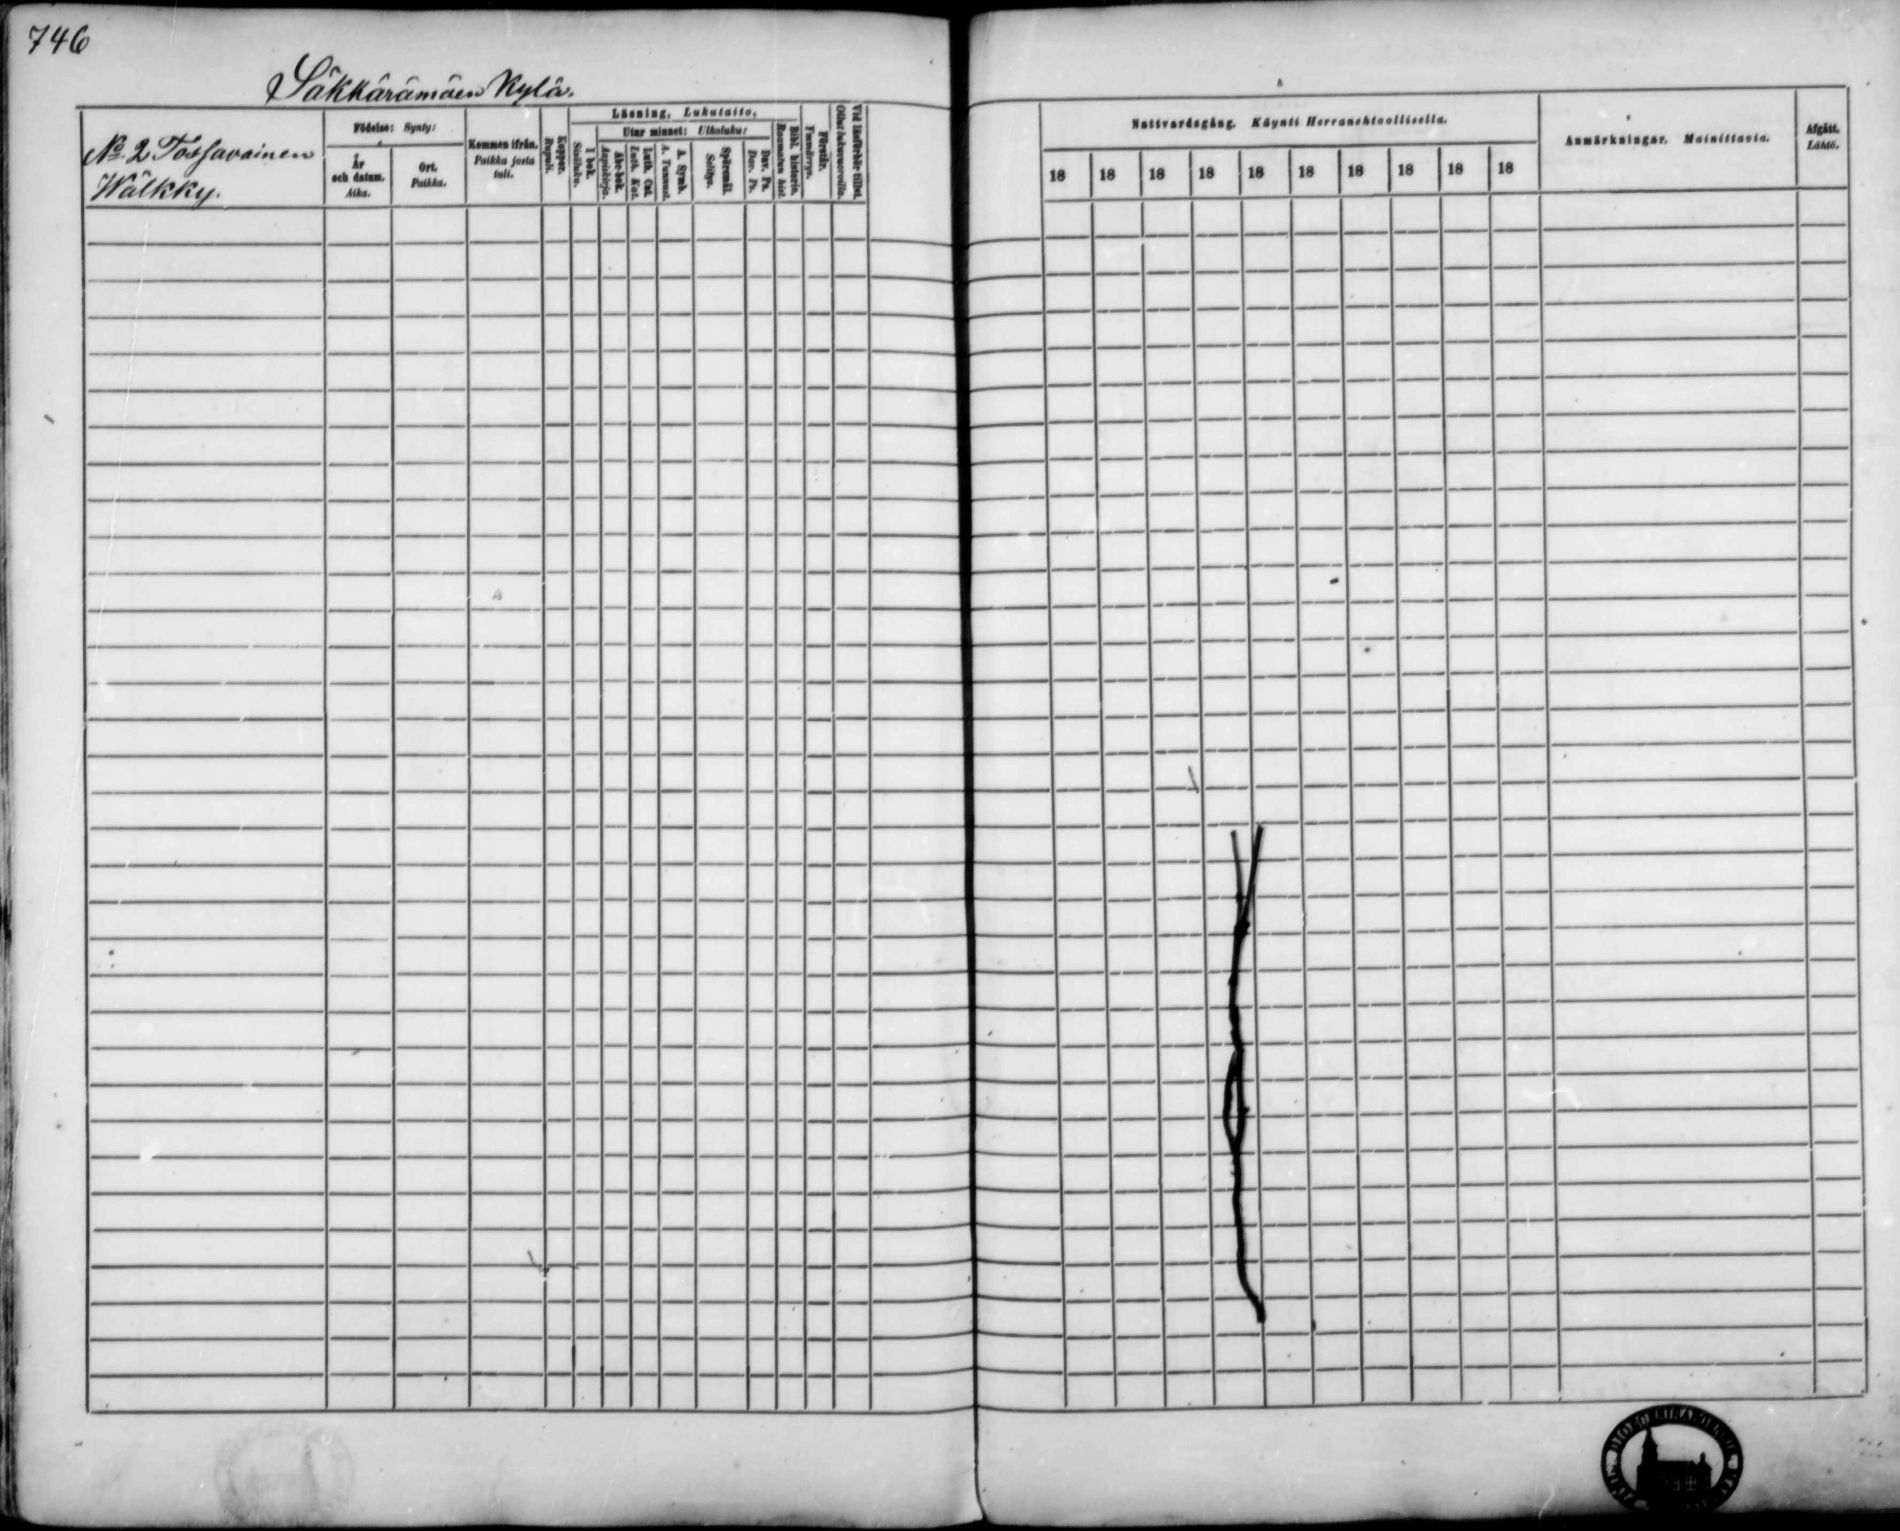 746
Säkkärämäen Kylä.
No 2 Tossavainen
Wälkky.
Födelse: Synty:
År
och datum.
Aika.
Ort.
Paikka.
Kommen ifrån.
Paikka josta
tuli.
Koppor.
Rupuli.
Läsning, Lukutaito,
I bok.
Sisäluku.
Utur minnet: Ulkoluku:
Abc-bok.
Aapiskirja.
Luth. Cat.
Luth. Kat.
A. Symb.
A. Tunnust.
Spörsmål.
Selitys.
Dav. Ps.
Dav. Ps.
Bibl. historia.
Raamatun hist.
Förstår.
Ymmärrys.
Vid läsförhör tillst.
Ollut lukuvuoroilla.
Nattvardsgång. Käynti Herranehtoollisella.
18 18 18 18 18 18 18 18 18 18
Anmärkningar. Mainittavia.
Afgått.
Lähtö.